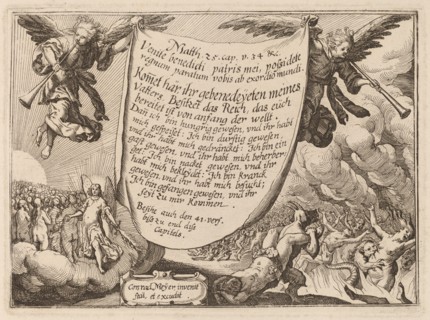 Matth. 25. cap. v. 34 &c.
Venite benedicti patris mei, possidete
regnum paratum vobis ab exordio mundi.
Kom̃et här ihr gebenedeyeten meines
Vatters, Besitzet das Reich, das euch
bereitet ist von anfang der wellt.
Dañ ich bin hungrig gewesen, vnd ihr habt
mich gespeißt: Ich bin durstig gewesen,
vnd ihr habt mich gedräncket: Ich bin ein
gast gewesen, vnd ihr habt mich beherber-
get: Ich bin nacket gewesen, vnd ihr
habt mich bekleidet: Ich bin kranck
gewesen, vnd ihr habt mich besucht:
Ich bin gefangen gewesen, vnd ihr
seyt zu mir kom̃en.
Besihe auch den 41. vers.
biß zu end diß
Capitels.
Conrad Meÿer invenit
fecit, et excudit.